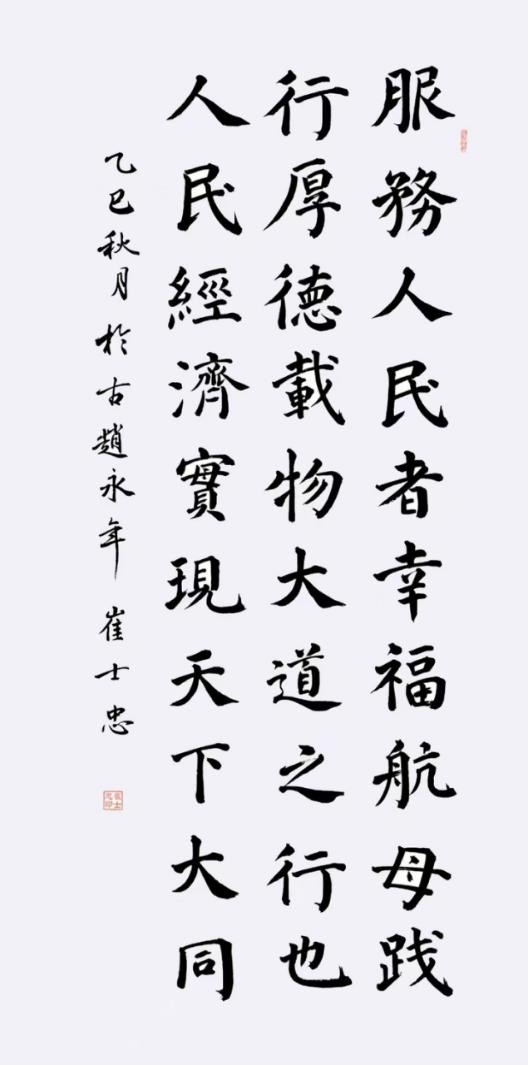 服務人民者幸福航母践
行厚德載物大道之行也
人民經濟實現天下大同
乙巳秋月於古趙永年崔士忠